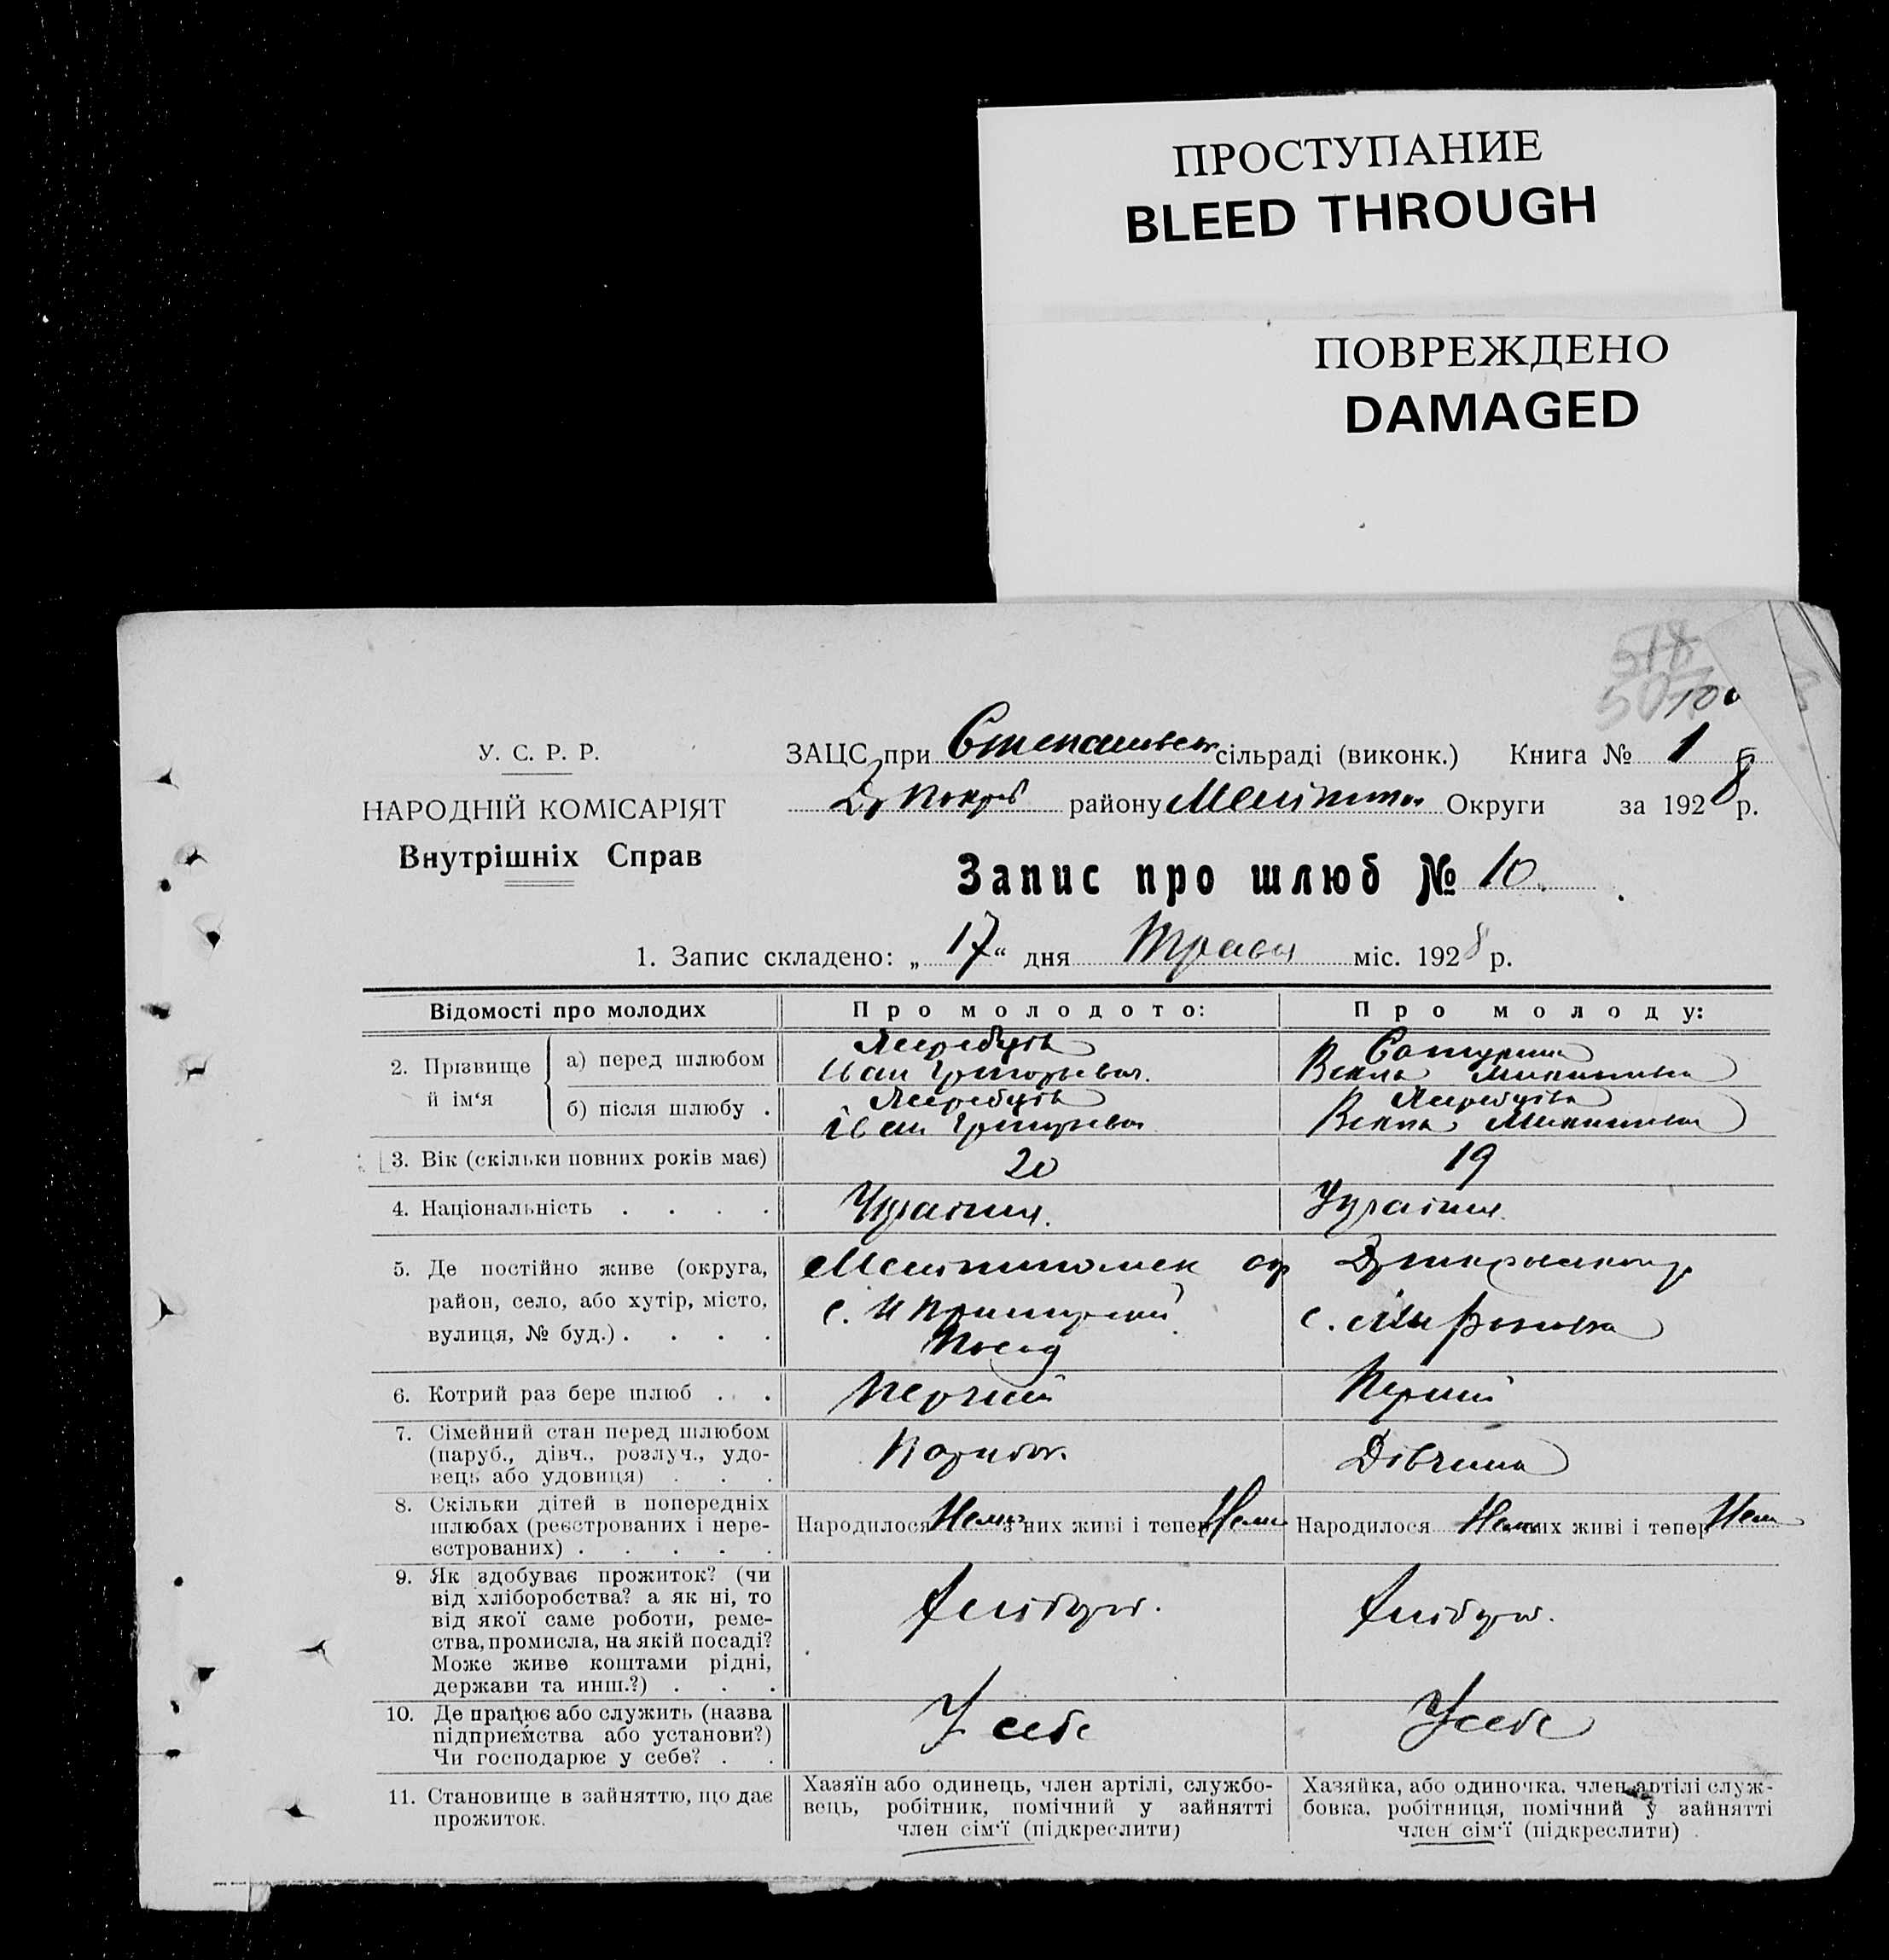 ПРОСТУПАНИЕ
BLEED THROUGH
ПОВРЕЖДЕНО
DAMAGED
518
507
100
У. С. Р. Р.
ЗАЦС при сільраді (виконк.) Книга № 1
НАРОДНІЙ КОМІСАРІЯТ
району Меліт Округи за 1928 р.
Внутрішніх Справ
Запис про шлюб № 10.
1. Запис складено: „17“ дня Травн міс. 1928 р.
Відомості про молодих
Про молодого:
Про молоду:
2. Прізвище й ім‘я
а) перед шлюбом
Іван Григорьевич.
Векла Микитивна
б) після шлюбу .
Іван Григорьевич
Векла Микитивна
3. Вік (скільки повних років має)
20
19
4. Національність . . . .
Україн.
Україн.
5. Де постійно живе (округа,
район, село, або хутір, місто,
вулиця, № буд.) . . . .
Мелітополск ок
с.
Посад
с. Миронивка
6. Котрий раз бере шлюб . .
Перший
Перший
7. Сімейний стан перед шлюбом
(паруб., дівч., розлуч., удо-
вець або удовиця) . . .
Парубок.
Дівчина
8. Скільки дітей в попередніх
шлюбах (реєстрованих і нере-
єстрованих) . . . . .
Народилося Нема з них живі і тепер Нема
Народилося Нема них живі і тепер Нема
9. Як здобуває прожиток? (чи
від хліборобства? а як ні, то
від якої саме роботи, реме-
ства, промисла, на якій посаді?
Може живе коштами рідні,
держави та инш.?) . . .
Хлібороб.
Хлібороб.
10. Де працює або служить (назва
підприємства або установи?)
Чи господарює у себе? . .
У себе
У себе
11. Становище в зайняттю, що дає
прожиток.
Хазяїн або одинець, член артілі, службо-
вець, робітник, помічний у зайнятті
член сім‘ї (підкреслити)
Хазяйка, або одиночка, член артілі служ-
бовка, робітниця, помічний у зайнятті
член сім‘ї (підкреслити)